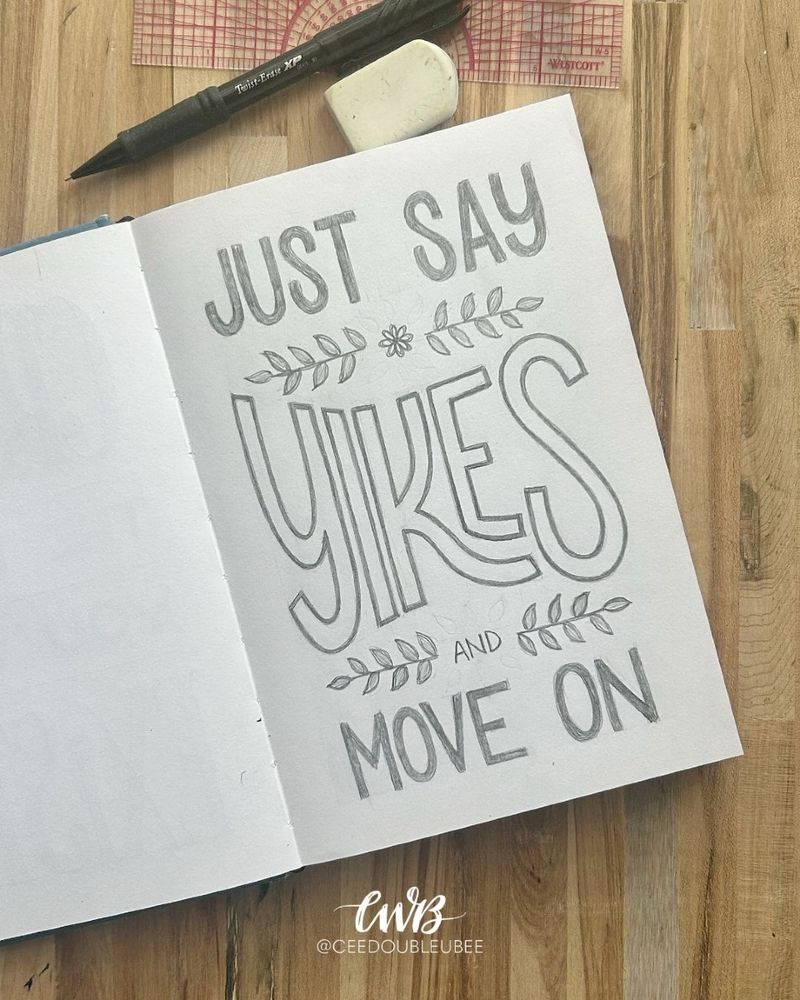 WESTCOTT®
W-5
Twist-Erase XP
JUST SAY
YIKES
AND
MOVE ON
CWB
@CEEDOUBLEUBEE